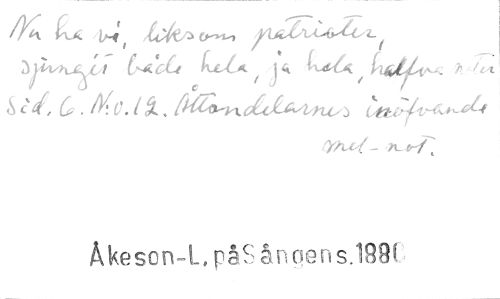 Nu ha vi, liksom patrioter,
sjungit både hela, ja hela, halfva noter
Sid. 6. N:o. 12. Åttondelarnes inöfvande
mel-not.
Åkeson-L. på Sångens. 1880